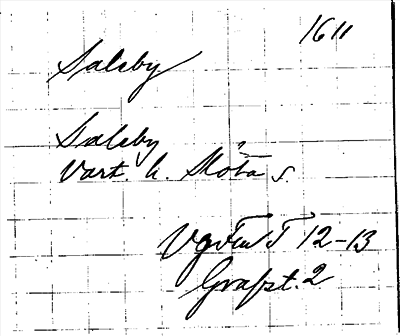 1611
Salsby
Salsby
Vart. h. Slöta s.
VgFmT 12-13
Grafst. 2